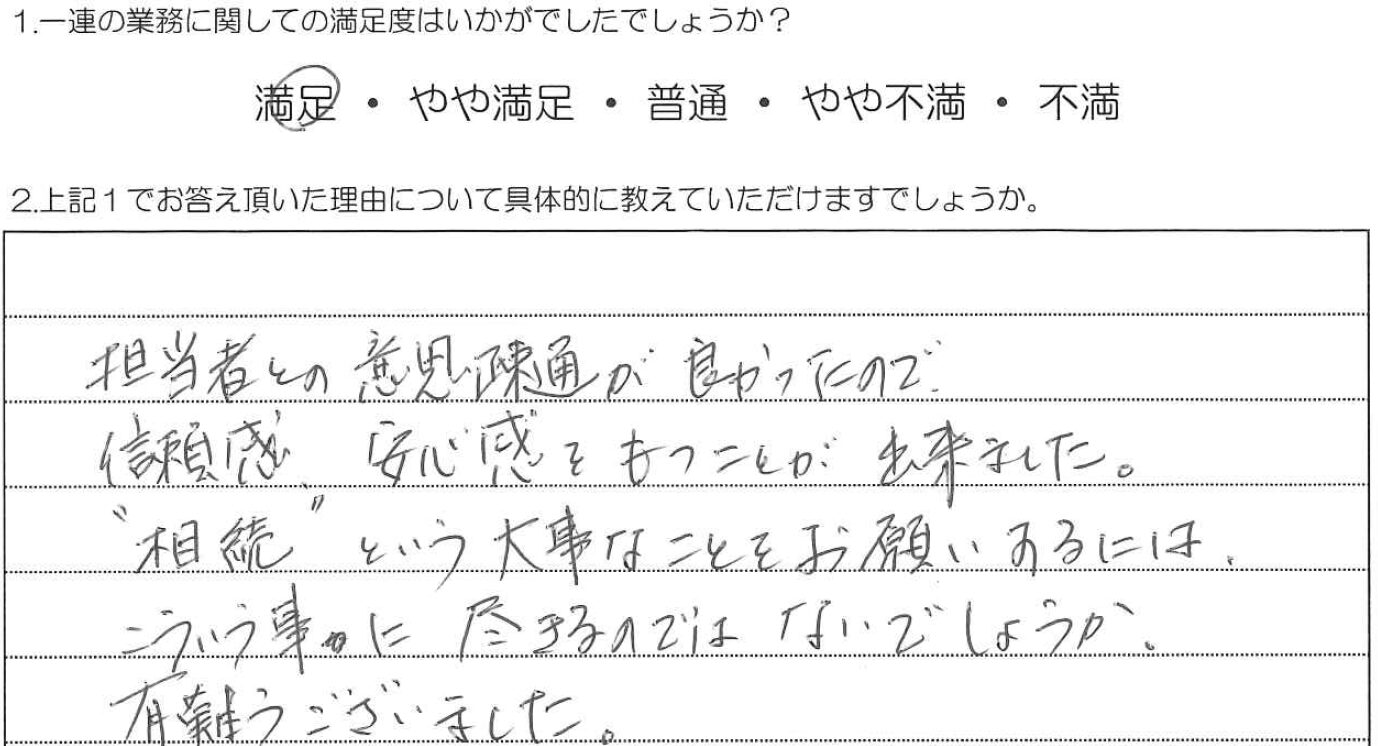 1.一連の業務に関しての満足度はいかがでしたでしょうか？
満足 ・ やや満足 ・ 普通 ・ やや不満 ・ 不満
2.上記1でお答え頂いた理由について具体的に教えていただけますでしょうか。
担当者との意思疎通が良かったので、
信頼感、安心感をもつことが出来ました。
"相続"という大事なことをお願いするには、
こういう事に尽きるのではないでしょうか。
有難うございました。